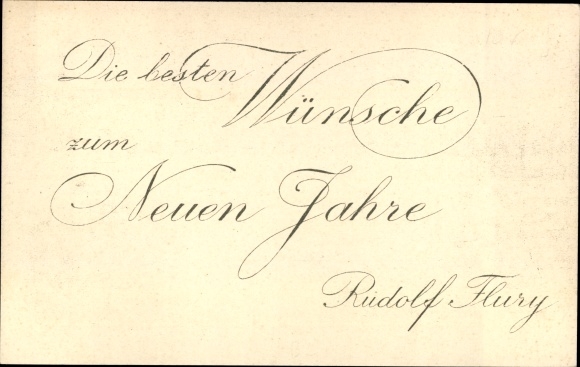 Die besten Wünsche
zum
Neuen Jahre
Rudolf Flury